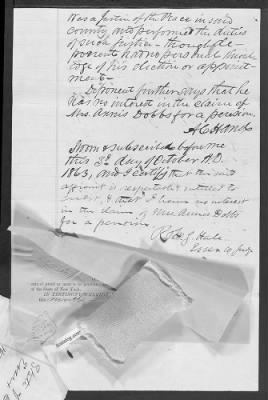 was a Justice of the Peace in said
county, and performed the duties
of such Justice - though de-
ponent has no personal knowl-
edge of his election or appoint-
ment -
Deponent further says that he
has no interest in the claim of
Mrs Annis Dobbs for a pension.
A C Hand
Sworn & subscribed before me
this 3d day of October A.D.
1863, and I certify that the said
affiant is respectable & entitled to
credit, & that I have no interest
in the claim of Mrs Annis Dobbs
for a pension
Robt S. Hale
Essex Co Judge
of the State of New York.
IN TESTIMONY WHEREOF,